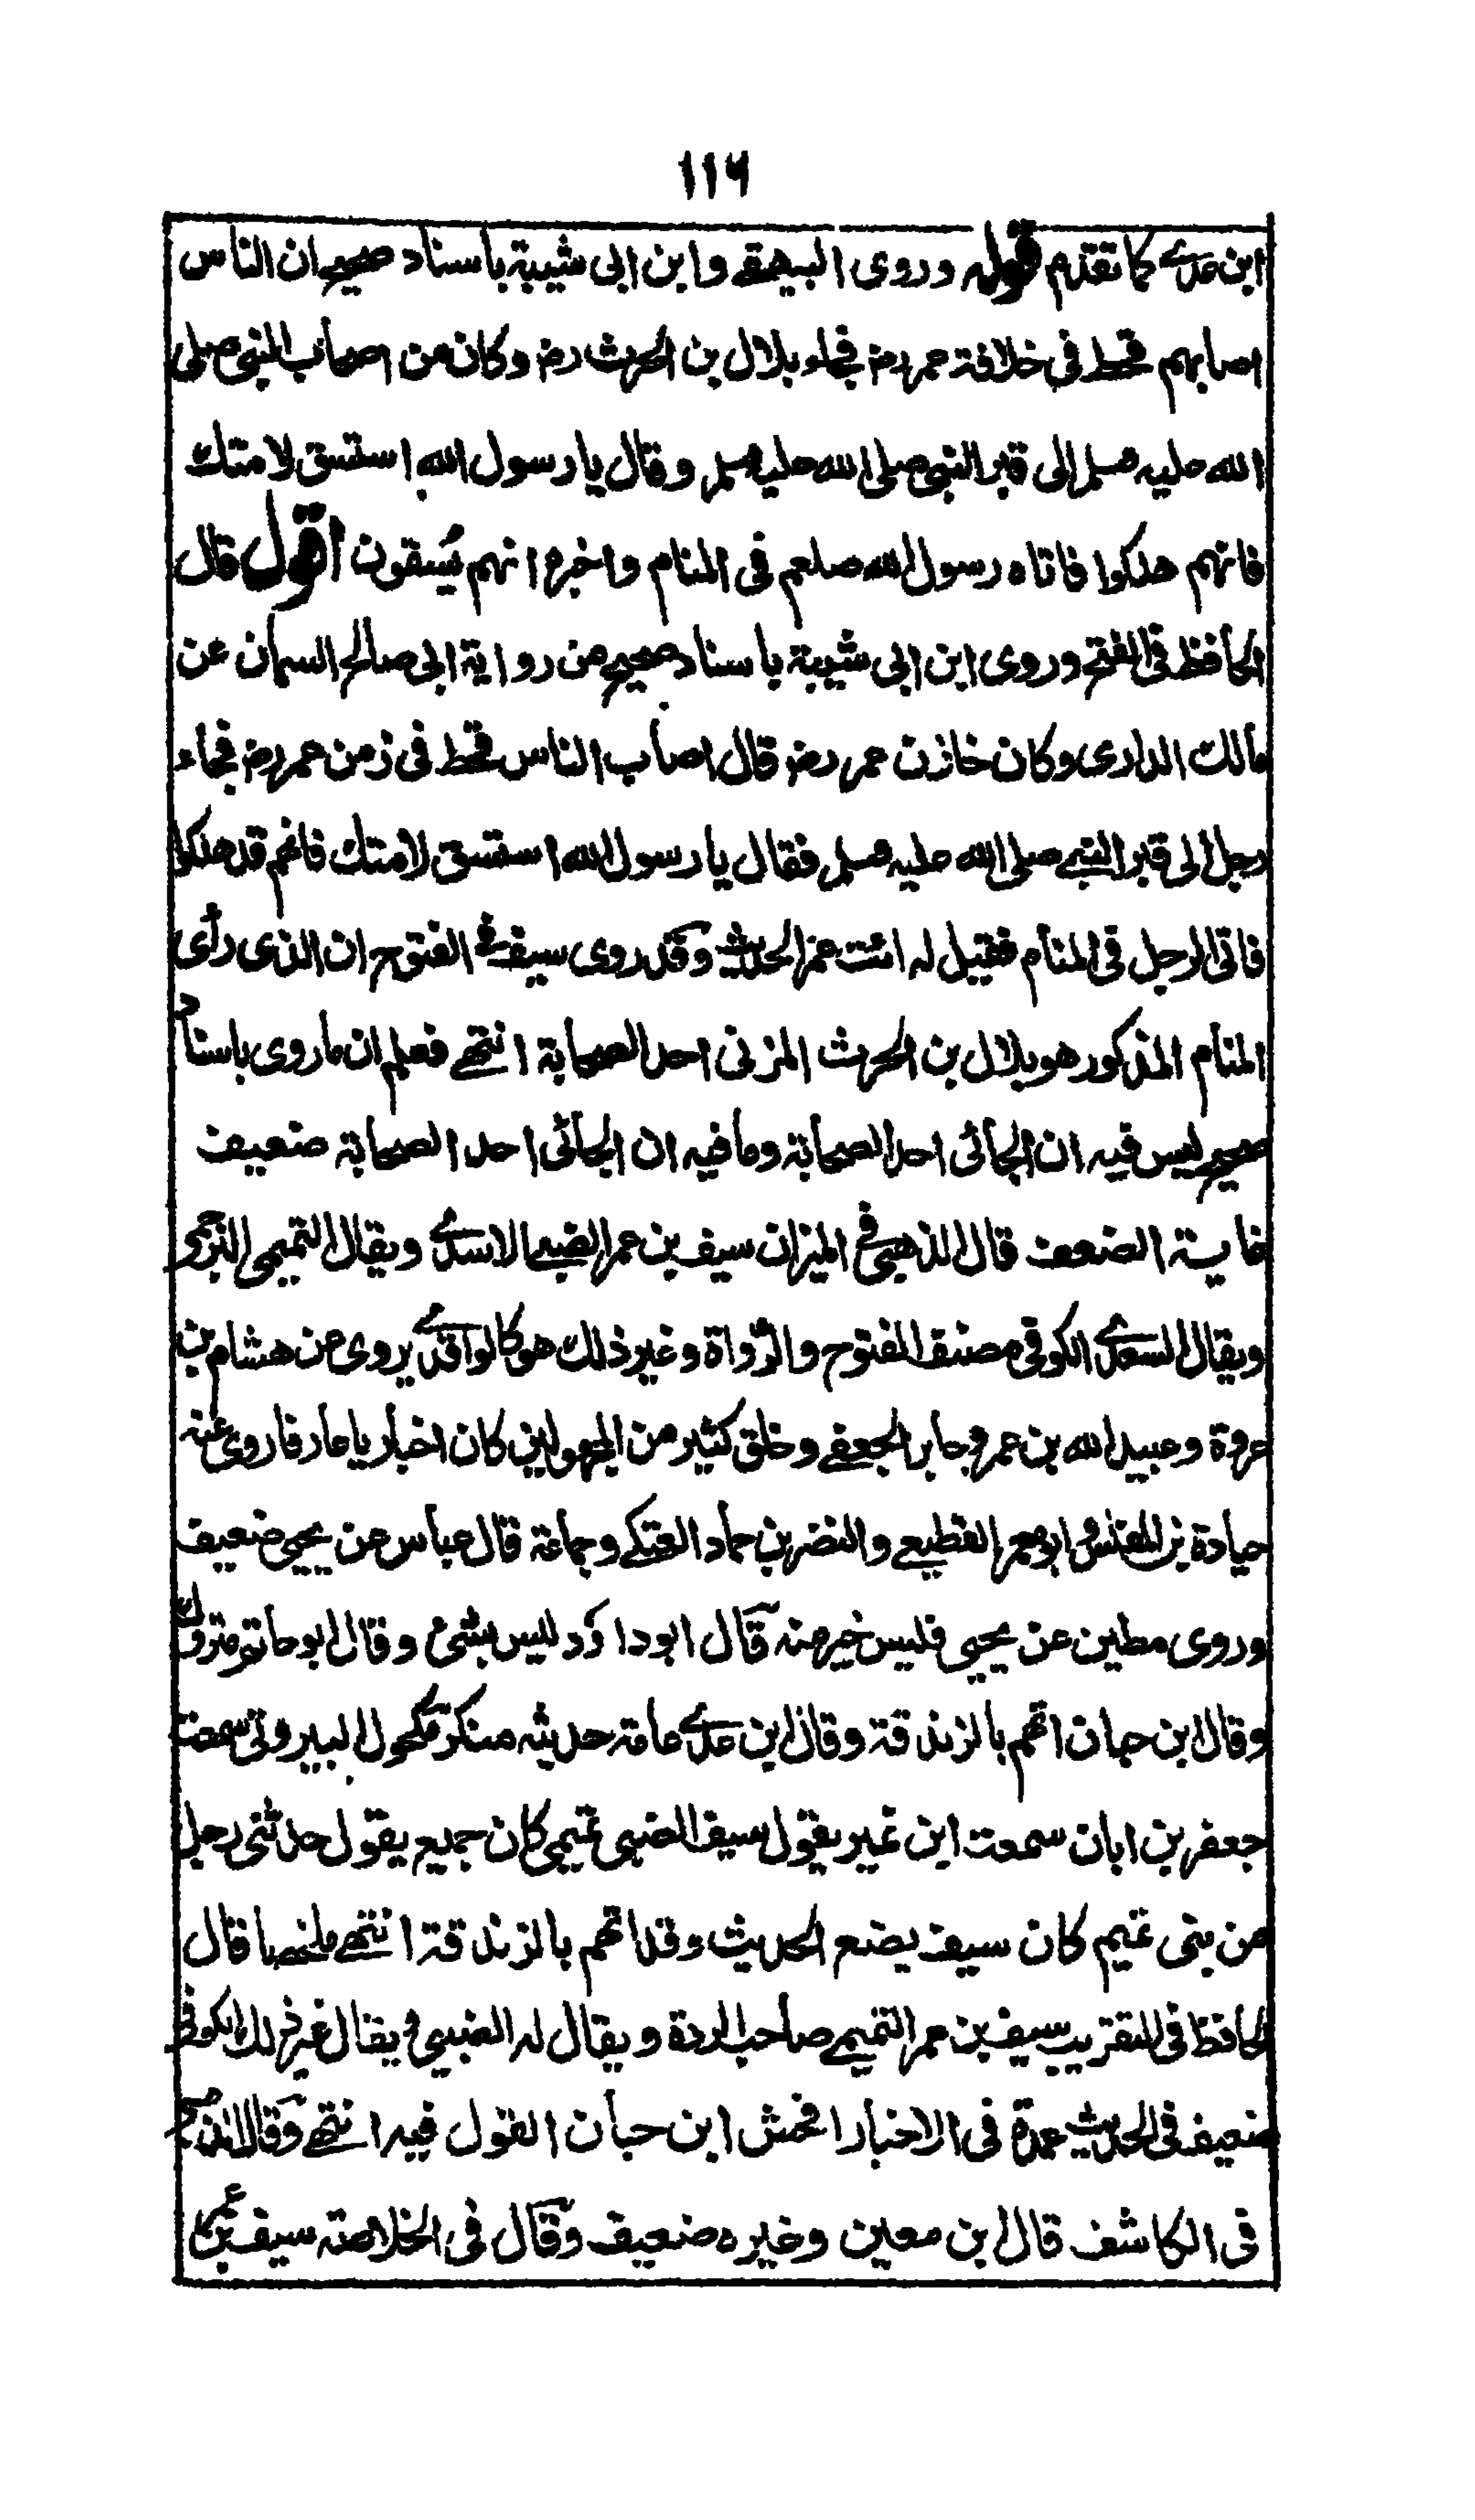 ١١٦
ابن عدي كما تقدم قوله وروى البيهقي وابن ابي شيبة باسناد صحيح ان الناس
اصابهم قحط في خلافة عمر رضـ فجاء بلال بن الحرث رضـ وكان من اصحاب النبي صلى
الله عليه وسلم الى قبر النبي صلى الله عليه وسلم وقال يا رسول الله استسق لامتك
فانهم هلكوا فاتاه رسول الله صلعم في المنام واخبره انهم يُسقون اقول قال
الحافظ في الفتح وروى ابن ابي شيبة باسناد صحيح من رواية ابي صالح السمان عن
مالك الدارى وكان خازن عمر رضـ قال اصاب الناس قحط في زمن عمر رضـ فجاء
رجل الى قبر النبي صلى الله عليه وسلم فقال يا رسول الله استسق لامتك فانهم قد هلكوا
فاتى الرجل في المنام فقيل له ائت عمر الحديث وقد روى سيف في الفتوح ان الذى رأى
المنام المذكور هو بلال بن الحرث المزنى احد الصحابة انتهى فعلم ان ما روى باسناد
صحيح ليس فيه ان الجائى احد الصحابة وما فيه ان الجائى احد الصحابة ضعيف
غاية الضعف قال الذهبي في الميزان سيف بن عمر الضبي الاسدي ويقال التميمى البرجمي
ويقال السعدي الكوفي مصنف الفتوح والردة وغير ذلك هو كالواقدي يروى عن هشام بن
عروة وعبيد الله بن عمر وجابر الجعفي وخلق كثير من المجهولين كان اخباريا عارفا روى عنه
جبادة بن المغلس وابو معمر القطيعي والنضر بن حماد العتكي وجماعة قال عباس عن يحيى ضعيف
وروى مطين عن يحيى فليس خير منه قال ابو داؤد ليس بشئ وقال ابو حاتم متروك
وقال ابن حبان اتهم بالزندقة وقال ابن عدي عامة حديثه منكر مكحول البيروتى سمعت
جعفر بن ابان سمعت ابن نمير يقول سيف الضبى تميمى كان جميع يقول حدثنى رجل
من بنى تميم كان سيف يضع الحديث وقد اتهم بالزندقة انتهى ملخصا قال
الحافظ في التقريب سيف بن عمر التميمي صاحب الردة ويقال له الضبي ويقال غير ذلك الكوفي
ضعيف في الحديث عمدة في الاخبار افحش ابن حبان القول فيه انتهى وقال الذهبي
في الكاشف قال ابن معين وغيره ضعيف وقال في الخلاصة سيف بن